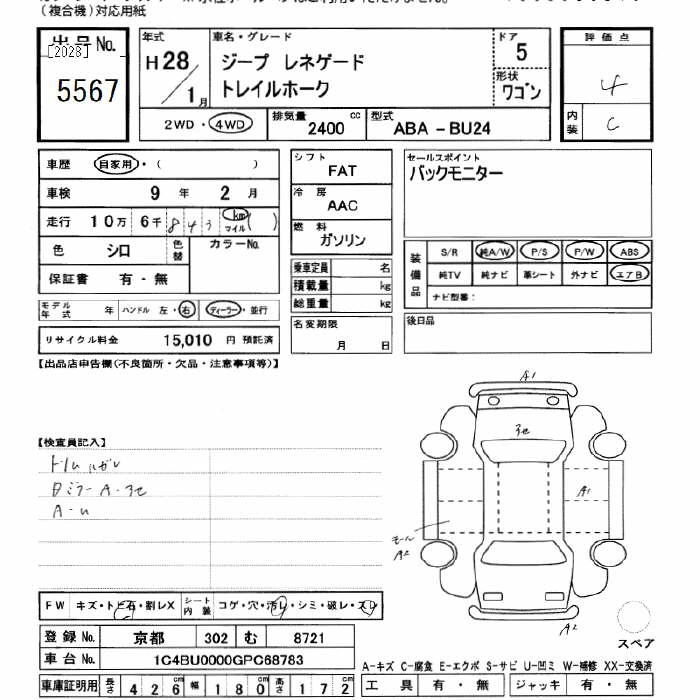 (複合機)対応用紙
出品No.
[2028]
5567
年式
H28/1月
車名・グレード
ジープ レネゲード
トレイルホーク
ドア
5
形状
ワゴン
評価点
4
内装
C
2WD・4WD
排気量
2400 cc
型式
ABA -BU24
車歴 自家用・( )
車検 9 年 2 月
走行 10万 6千 843 km マイル ( )
色 シロ 色替 カラーNo.
保証書 有・無
モデル年式 年 ハンドル 左・右 ディーラー・並行
リサイクル料金 15,010 円 預託済
シフト
FAT
冷房
AAC
燃料
ガソリン
乗車定員 名
積載量 kg
総重量 kg
名変期限
月 日
セールスポイント
バックモニター
装備品
S/R 純A/W P/S P/W ABS
純TV 純ナビ 革シート 外ナビ エアB
ナビ型番:
後日品
【出品店申告欄(不良箇所・欠品・注意事項等)】
【検査員記入】
A-U
A1
A1
モール
A2
A2
スペア
FW キズ・トビ石・割レX シート内装 コゲ・穴・汚レ・シミ・破レ・スレ
登録No. 京都 302 む 8721
車台No. 1C4BU0000GPC68783
車庫証明用 長さ 426 cm 幅 180 cm 高さ 172 cm
A-キズ C-腐食 E-エクボ S-サビ U-凹ミ W-補修 XX-交換済
工具 有・無 ジャッキ 有・無